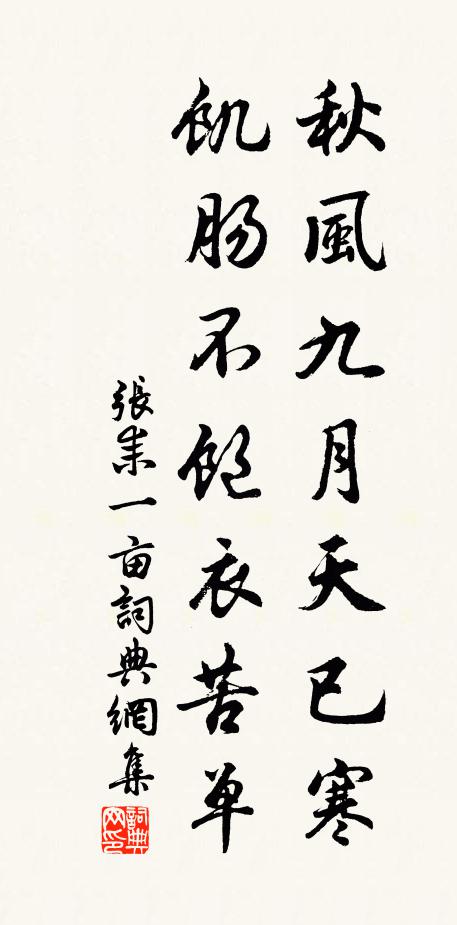 秋風九月天已寒
飢腸不飽衣苦单
張耒一亩詞典網集
詞典网印